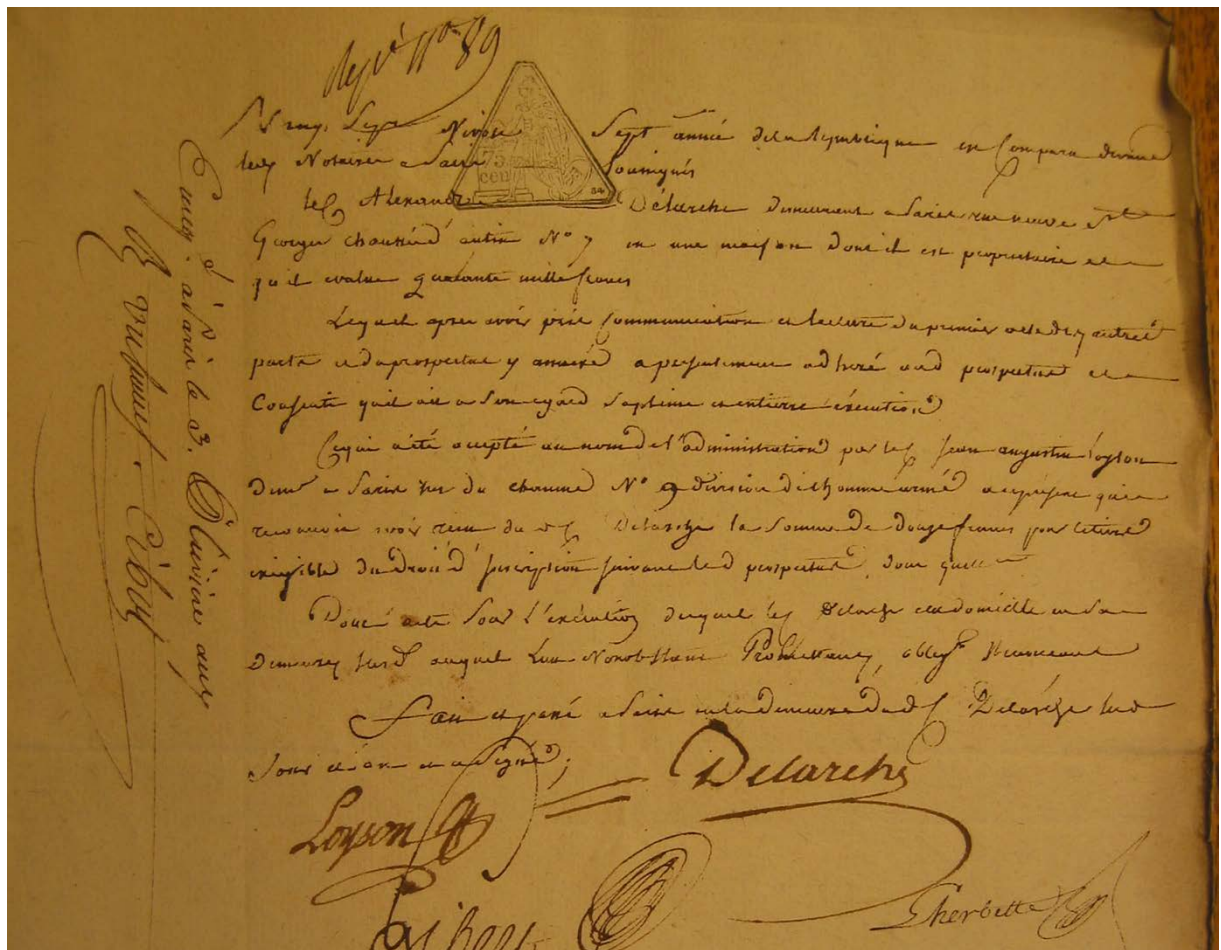 Nº 89
Nivose Sept année de la Republique est Comparu devant
les Notaires a Paris Soussignés
75
cen
84
le C. Alexandre Delarche demeurant a Paris rue neuve St
Georges chaussée d'antin Nº 7 en une maison dont il est proprietaire et
qu'il evalue quarante mille francs
Lequel apres avoir pris Communication et lecture du premier acte des autres
parts et du prospectus y annexé a presentement adheré aud prospectus et
Consenti quil ait a son egard sa pleine et entierre execution
Ce qui a été accepté au nom de l'administration par le C. jean augustin loyson
demt a Paris rue du chaume Nº 9 division de l'homme armé a ce present qui
reconnoit avoir recu du d C. Delarche la Somme de douze francs pour le tiers
exigible du droit d'inscription suivant led prospectus dont quit
Dont acte Pour l'execution duquel le C. Delarche elu domicile en sa
demeure susd auquel Lieu Nonobstant Promettant, obligt Renoncant
Fait et passé a Paris en la demeure du d C. Delarche susd
jour et an et a signé;
Delarche
Loyson
Lherbette
Enreg. à Paris le 3. Pluviose an 7